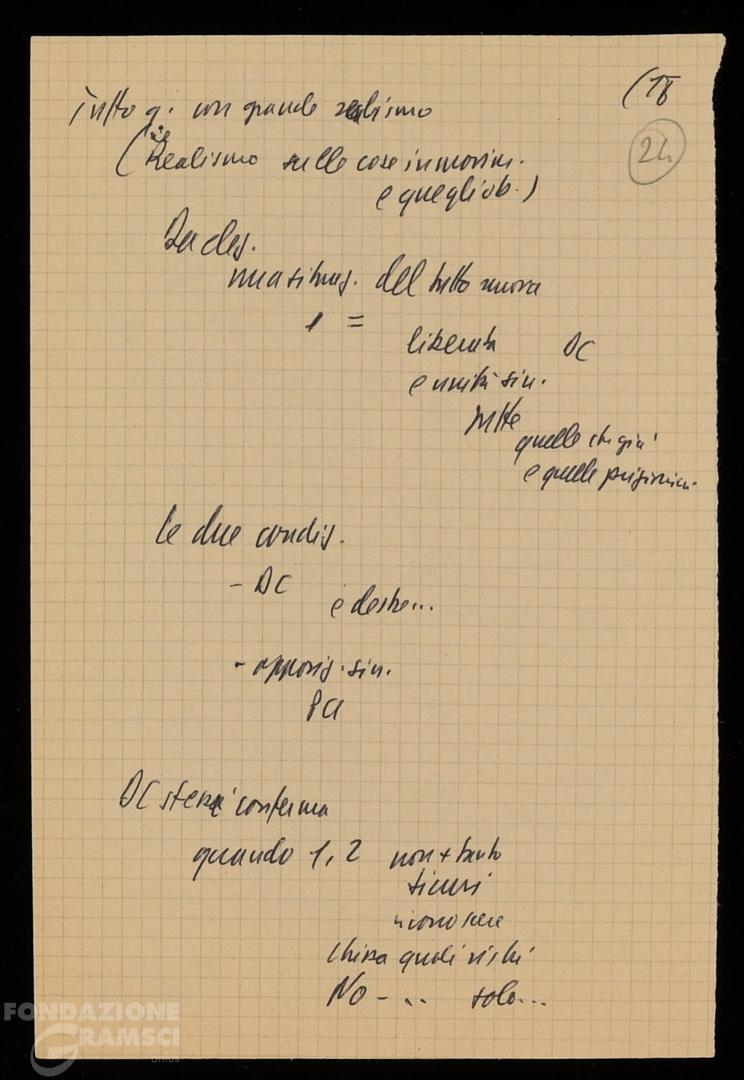 (18
24
Tutto q. con grande realismo
(Realismo sulle cose in movim.
e quegli ob.)
Da des.
una situaz. del tutto nuova
1 =
liberata DC
e unità sin.
tutte
quelle che già
e quelle
le due condiz.
- DC
e destre...
- opposiz. sin.
PCI
DC stessa conferma
quando 1, 2 non + tanto
sicuri
riconoscere
chissà quali rischi
No - .. solo...
FONDAZIONE
GRAMSCI
onlus